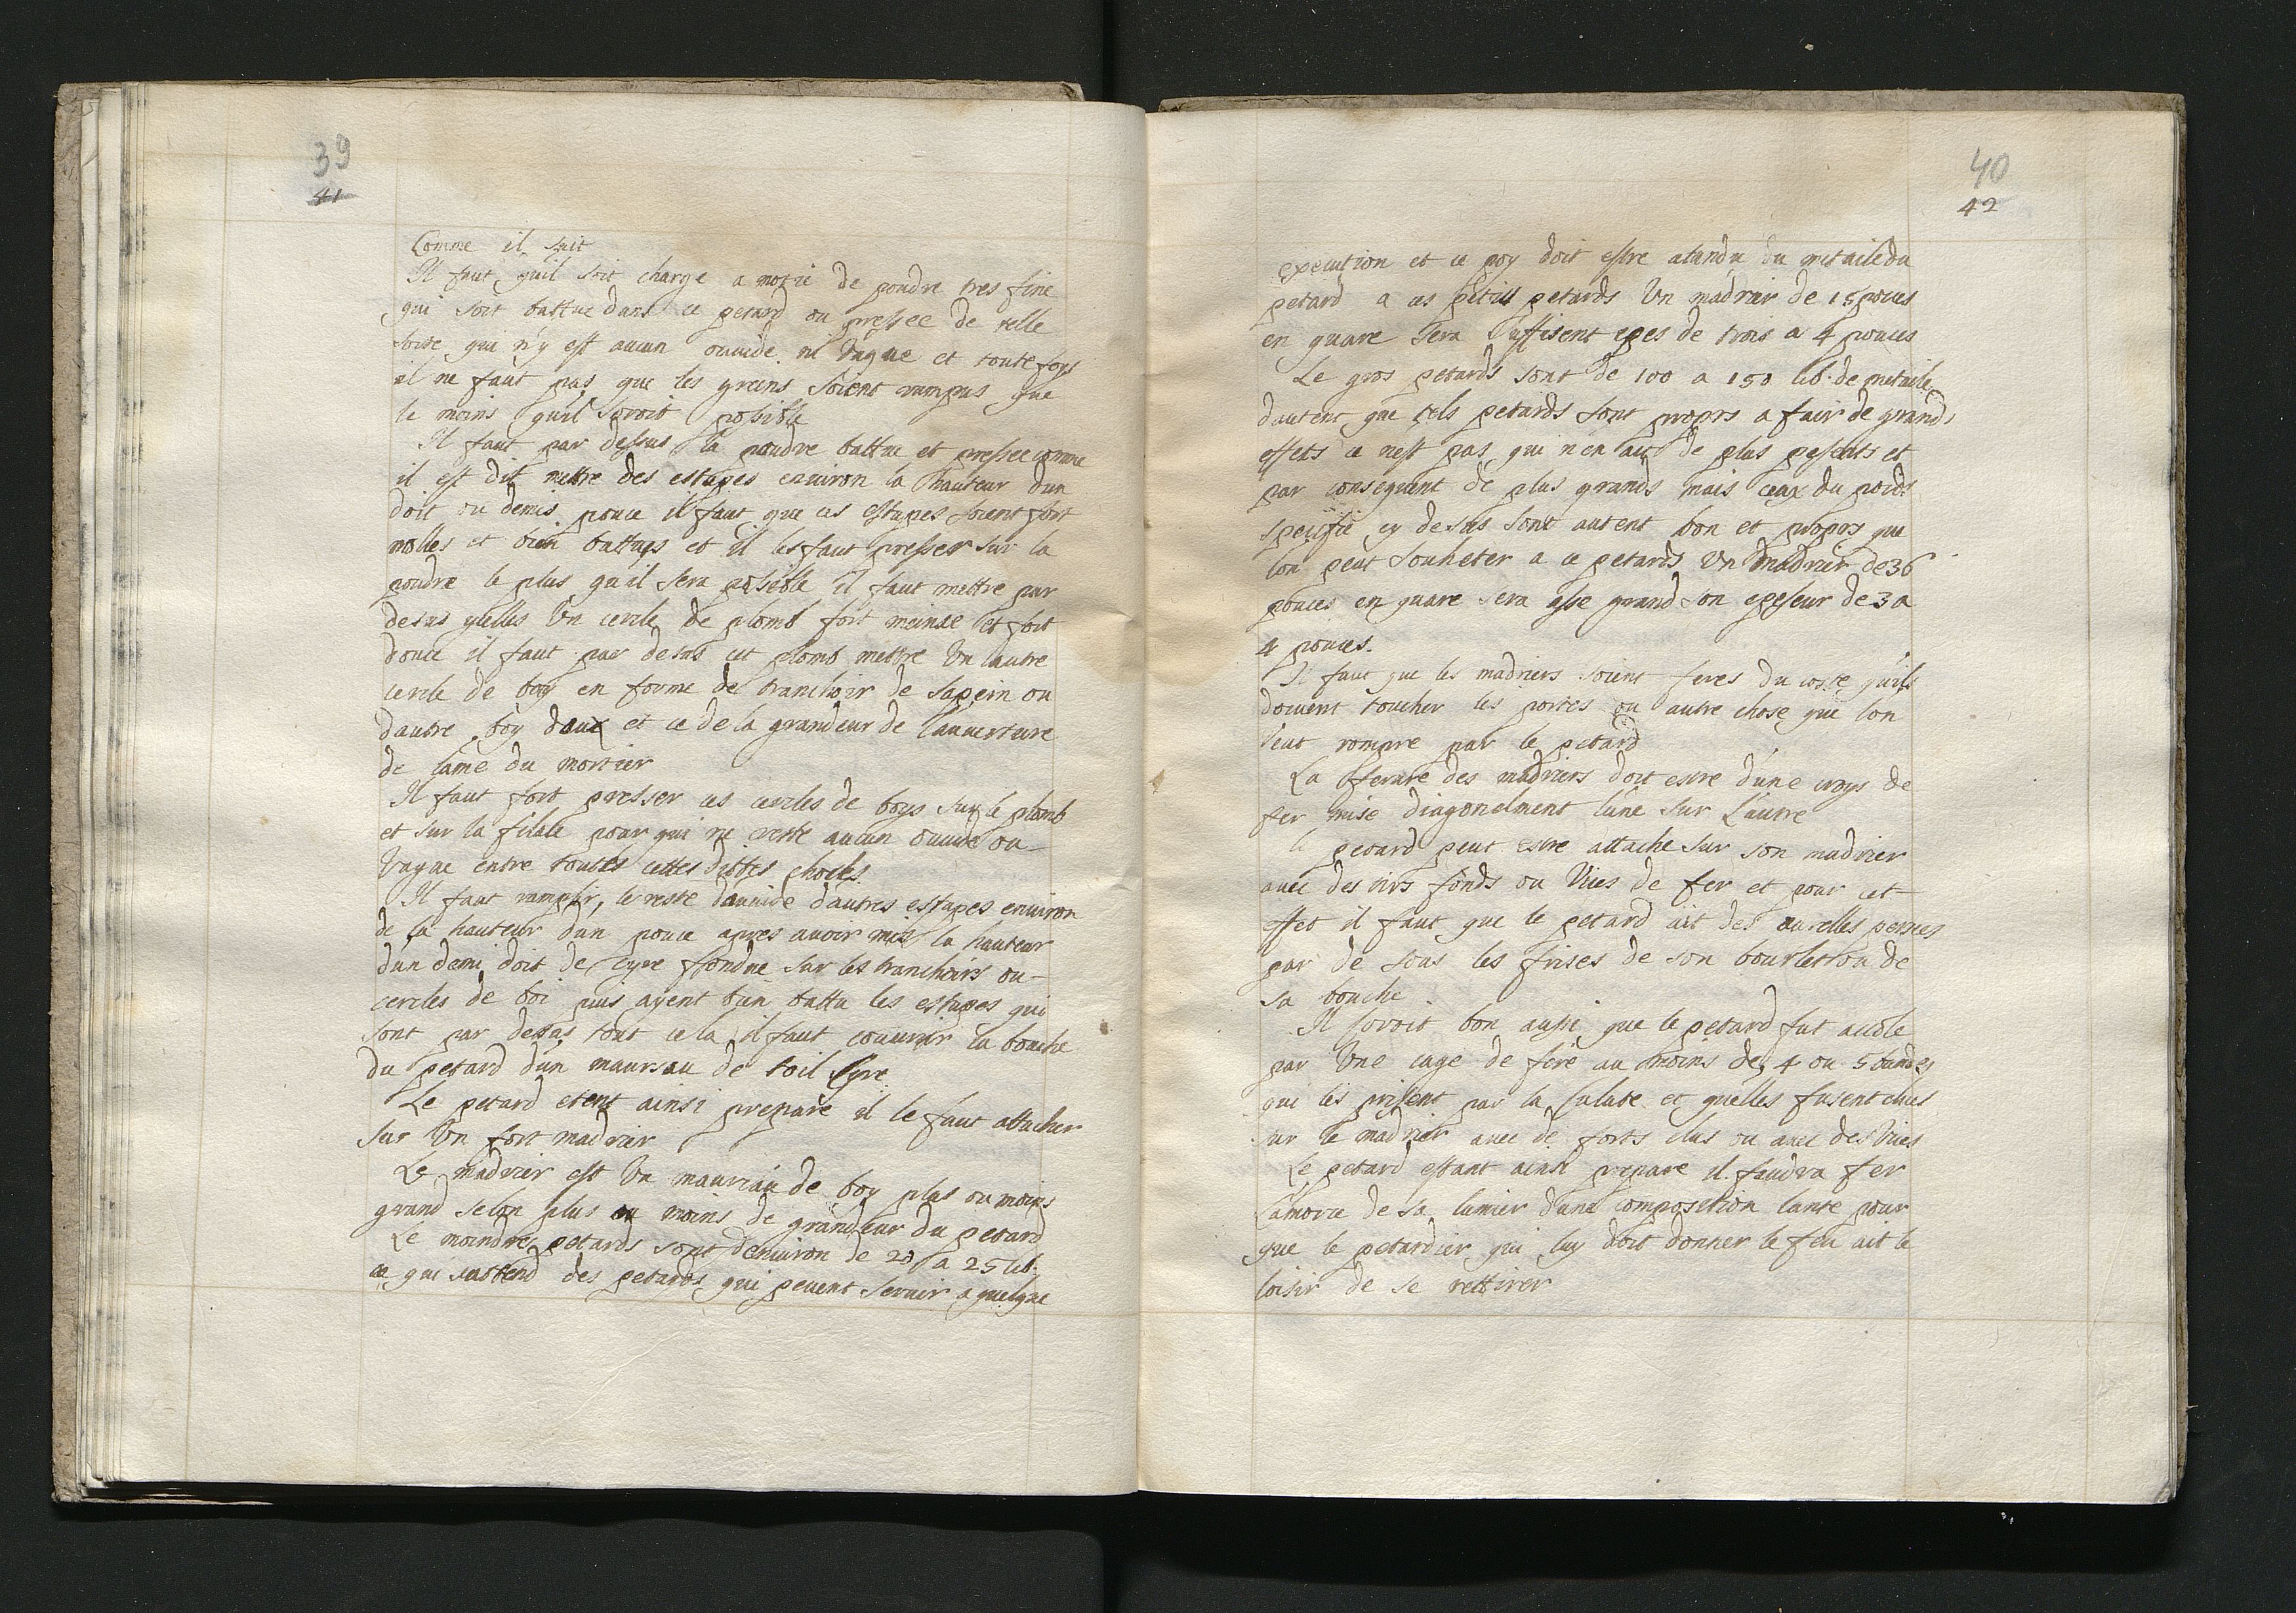 39
41
Comme il suit
Il faut quil soit charge a motié de poudre tres fine
qui soit battue dans ce petard ou pressee de telle
sorte qui n'y est aucun ouuide ni vague et toutefoys
il ne faut pas que les greins soient rumpus que
le moins quil seroit posible
Il faut par dessus la poudre battue et pressee comme
il est dit mettre des estupes enuiron la hauteur dun
doit ou demis pouce il faut que ces estupes soient fort
molles et bien battues et il les faut presser sur la
poudre le plus qu'il sera posieble il faut mettre par
desus ycelles Un cercle de plomb fort meinse et fort
douce il faut par desus cet plomb mettre Un autre
cercle de boy en forme de tranchoir de sapein ou
dautre boy doux et ce de la grandeur de l'auuerture
de lame du mortier
Il faut fort presser ces cercles de boys sur le plomb
et sur la filale pour qui ne reste aucun ouuide ou
vague entre toutes cettes dittes choses
Il faut ramplir, le reste dauuide d'autres estupes enuiron
de la hauteur dun pouce apres auoir mis la hauteur
d'un demi doit de Cyre fondue sur les tranchoirs ou
cercles de boi puis ayent bien battu les estupes qui
sont par desus tout cela il faut couurir la bouche
du petard dun maursau de toil Cyre
Le petard etent ainsi prepare il le faut attacher
sur Un fort madrier
Le madrier est Un maursau de boy plus ou moins
grand selon plus ou moins de grandeur du petard
Le moindres petards sont denuiron de 20 a 25 lib.
ce que sastend des petards qui peuent seruir a quelque
40
42
execution et ce poy doit estre atandu du metaile du
petard a ces petits petards Un madrier de 15 pouces
en quare sera suffisent epes de trois a 4 pouces
Le gros petards sont de 100 a 150 lib. de metaile
dautent que tels petards sont proprs a fair de grands
effets ce nest pas qui n'en ait de plus pesents et
par consequent de plus grands mais ceux du poids
speicifie cy desus sont autent bon et proprs que
lon peut souheter a ce petards Un madrier de 36
pouces en quare sera asse grand son epeseur de 3 a
4 pouces.
Il faut que les madriers soient feres du coste quils
doiuent toucher les portes ou autre chose que lon
veut rompre par le petard
La fferure des madriers doit estre dune croys de
fer mise diagonelment lune sur l'autre
le petard peut estre attache sur son madrier
auec des tirs fonds ou Vies de fer et pour cet
effet il faut que le petard ait des aurelles persees
par de sous les frises de son bourlet ou de
sa bouche
Il seroit bon aussi que le petard fut accole
par Une cage de fere au moins de 4 ou 5 bandes
qui les prisent par la culate et quelles fusent clues
sur le madrier auec de forts clus ou auec des Vies
Le petard estant ainsi prepare il faudra fer
lamorce de sa lumier dune composetion lante pour
que le petardier qui luy doit donner le feu ait le
loisir de se rettirer